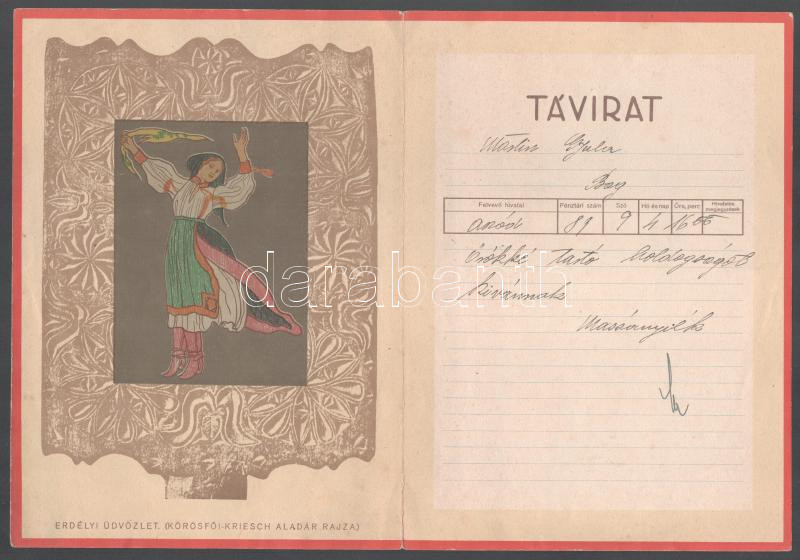 ERDÉLYI ÜDVÖZLET. (KÖRÖSFŐI-KRIESCH ALADÁR RAJZA)
TÁVIRAT
Martin Gyula
Bag
Felvevő hivatal Pénztári szám Szó Hó és nap Óra, perc Hivatalos megjegyzések
Aszód 89 9 4 16 05
Örökké tartó boldogságot
kívánnak
Massányiék
darabanth